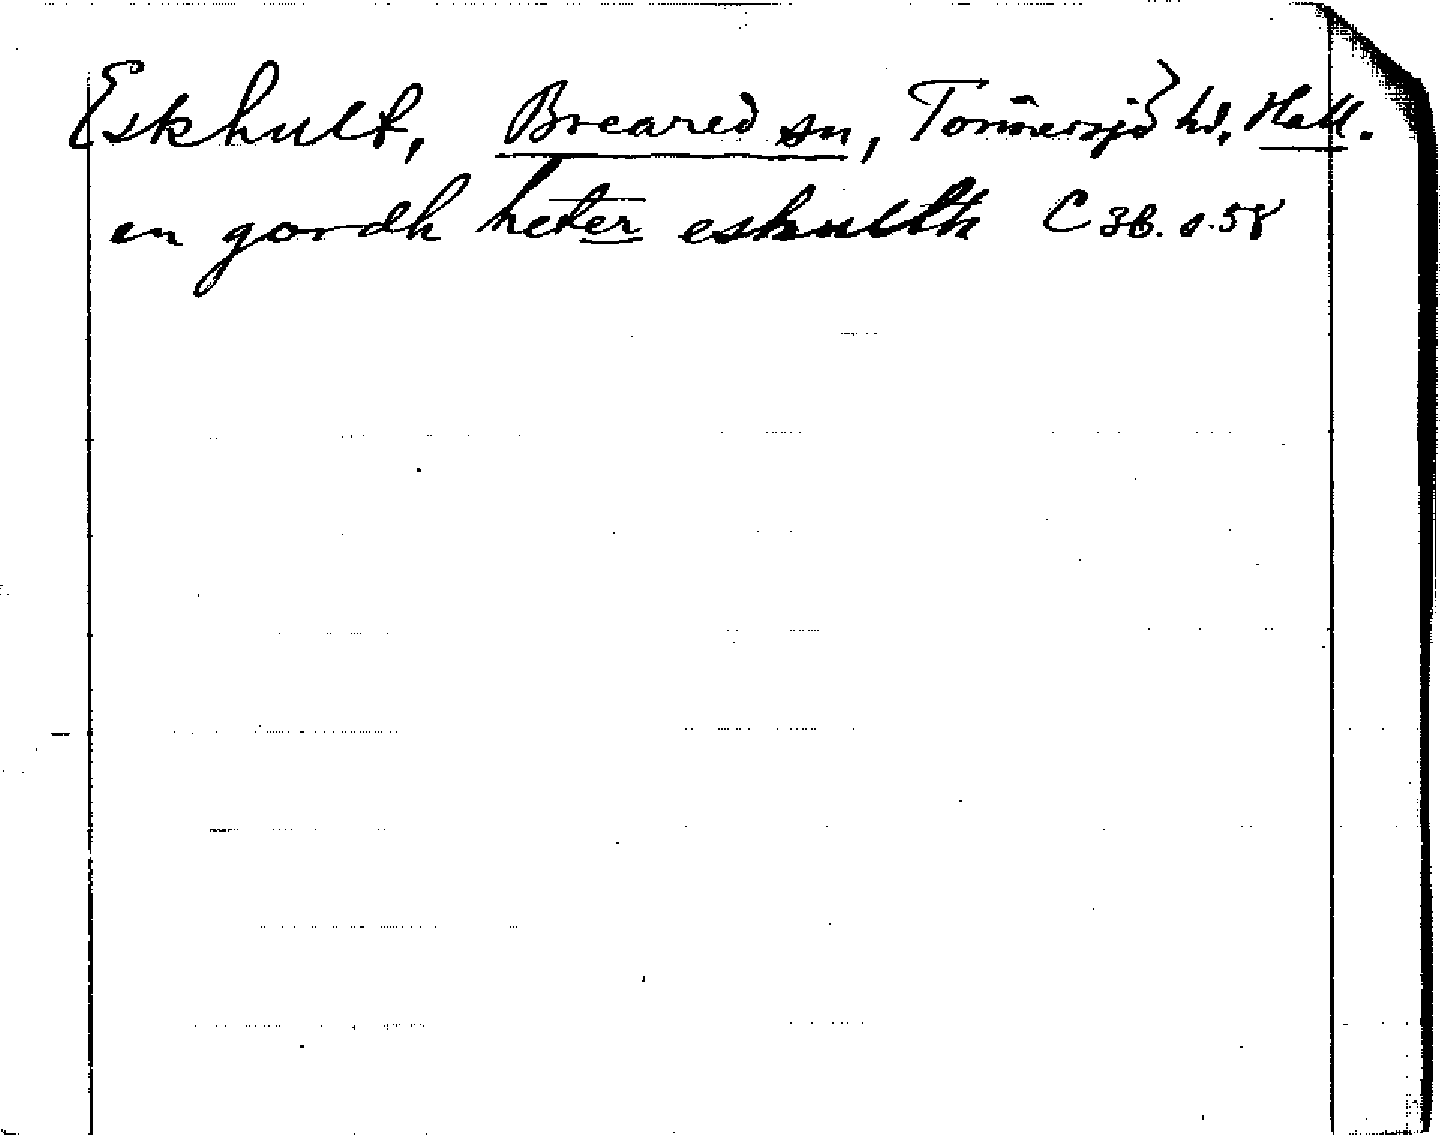 Eskhult, Breared sn, Tönnersjö hd, Hall.
en gordh heter eskullth C 3b. s. 58